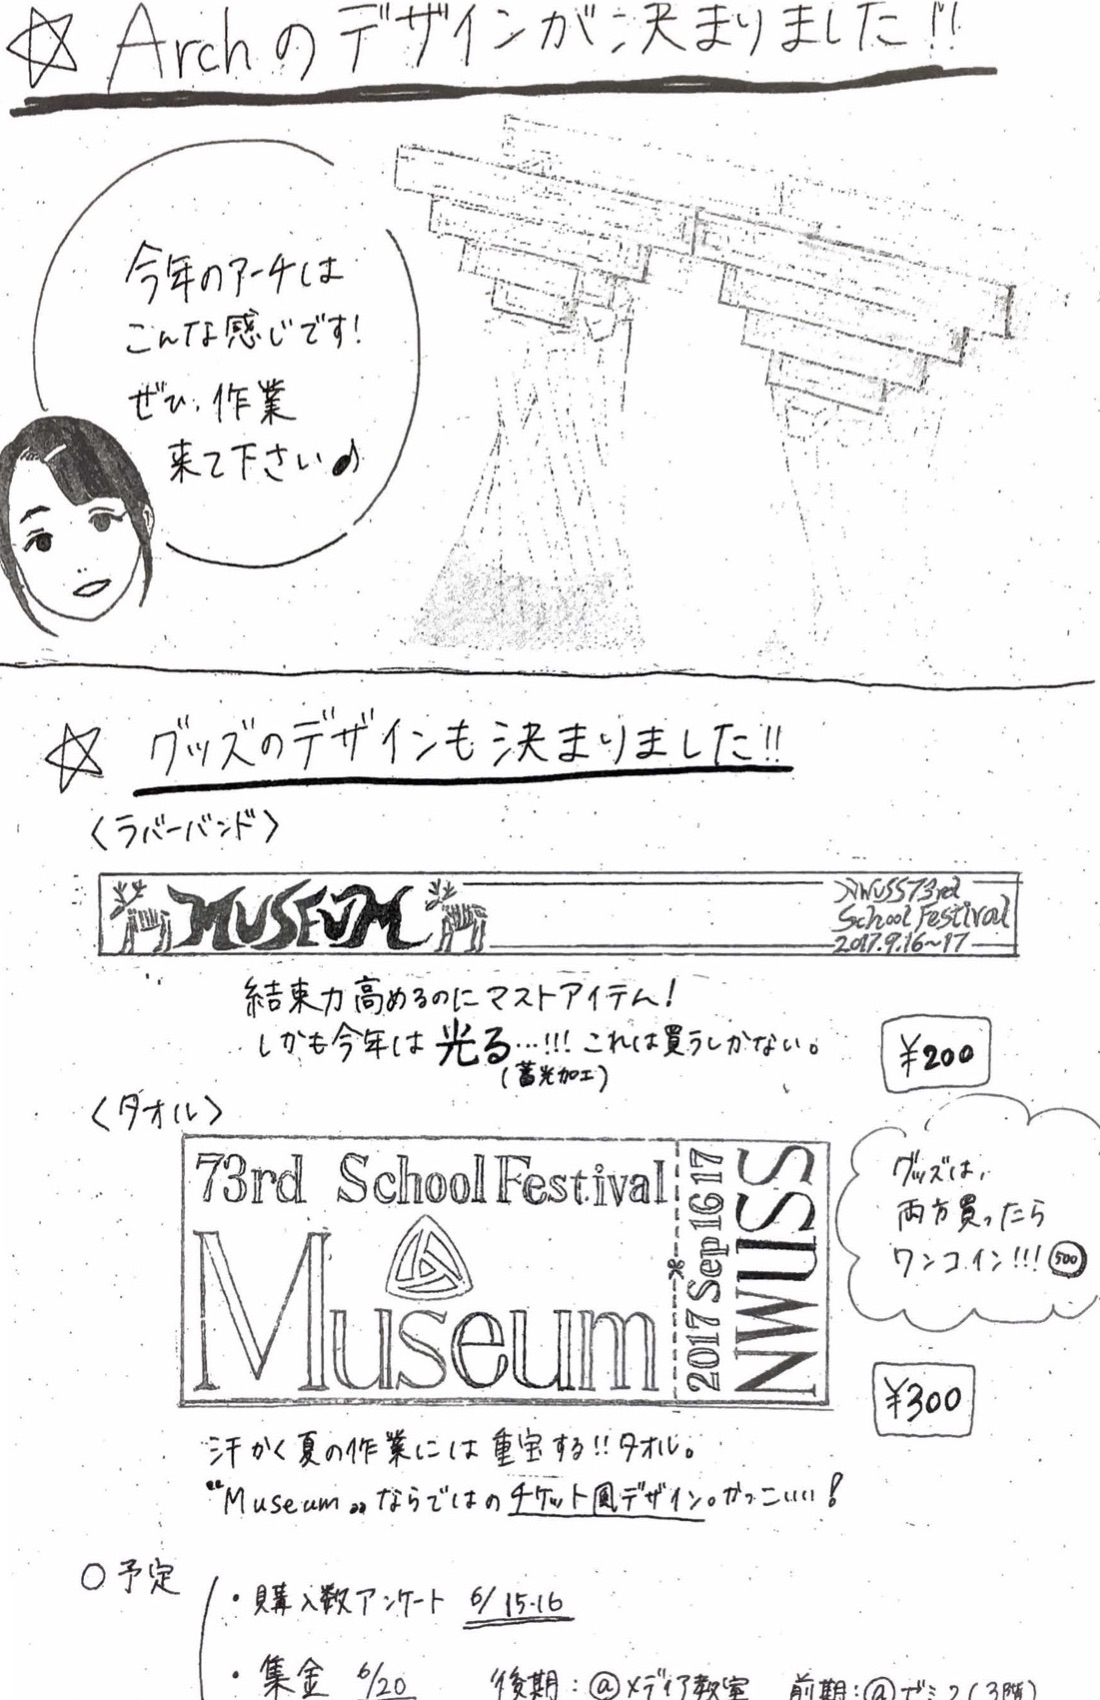 ☆ Archのデザインが決まりました!!
今年のアーチは
こんな感じです!
ぜひ、作業
来て下さい♪
☆ グッズのデザインも決まりました!!
〈ラバーバンド〉
MUSEUM
NWUSS73rd
School Festival
2017.9.16~17
結束力高めるのにマストアイテム!
しかも今年は光る…!!! これは買うしかない。
(蓄光加工)
¥200
〈タオル〉
73rd School Festival
Museum
2017 Sep 16 17
NWUSS
グッズは、
両方買ったら
ワンコイン!!! 500
¥300
汗かく夏の作業には重宝する!! タオル。
“Museum„ならではのチケット風デザイン。かっこいい!
○予定
・購入数アンケート 6/15.16
・集金 6/20 後期:@メディア教室 前期:@ゼミ2(3階)